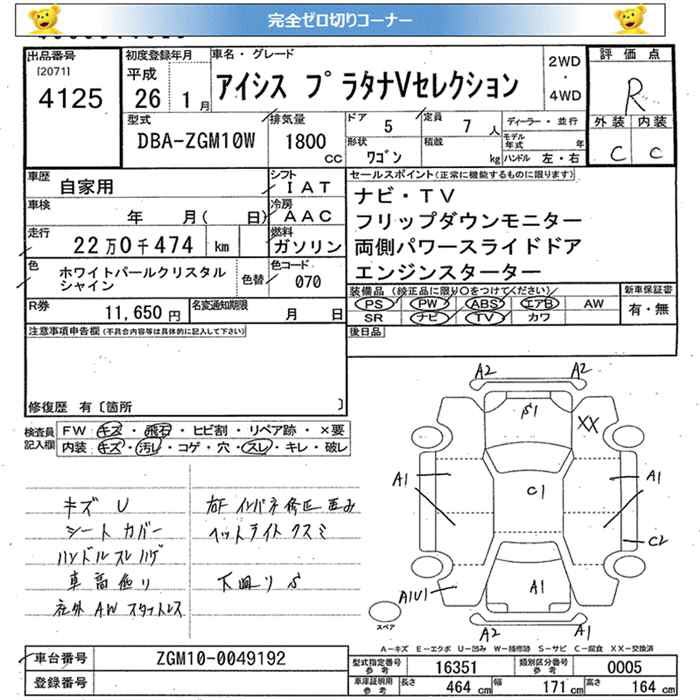 完全ゼロ切りコーナー
出品番号
[2071]
4125
初度登録年月
平成
26 1月
車名・グレード
アイシス プラタナVセレクション
2WD
・
4WD
評価点
R
型式
DBA-ZGM10W
排気量
1800
cc
ドア
5
定員
7 人
形状
ワゴン
積載
kg
ディーラー・並行
モデル年式 年
ハンドル 左・右
外装 内装
C C
車歴
自家用
シフト
IAT
車検
年 月( 日)
冷房
AAC
走行
22万0千474 km
燃料
ガソリン
色
ホワイトパールクリスタル
シャイン
色替
色コード
070
R券
11,650 円
名変通知期限
月 日
セールスポイント(正常に機能するものに限ります)
ナビ・TV
フリップダウンモニター
両側パワースライドドア
エンジンスターター
装備品(純正品に限り○をつけてください)
PS PW ABS エアB AW
SR ナビ TV カワ
新車保証書
有・無
後日品
注意事項申告欄(不具合内容等は具体的に記入して下さい)
修復歴 有〔箇所 〕
検査員
記入欄
FW キズ・飛石・ヒビ割・リペア跡・×要
内装 キズ・汚レ・コゲ・穴・スレ・キレ・破レ
キズ U
シートカバー
ハンドルスレ ハゲ
車高低り
社外 AW スタットレス
右F インパネ修正 歪み
ヘットライト クスミ
下廻り S
A2 A2
S1
XX
A1
C1
A1
C2
A1U1
A1
A2 A1
スペア
A-キズ E-エクボ U-凹み W-補修跡 S-サビ C-腐食 XX-交換済
車台番号
ZGM10-0049192
登録番号
型式指定番号
参考
16351
類別区分番号
参考
0005
車庫証明用
参考
長さ
464 cm
幅
171 cm
高さ
164 cm